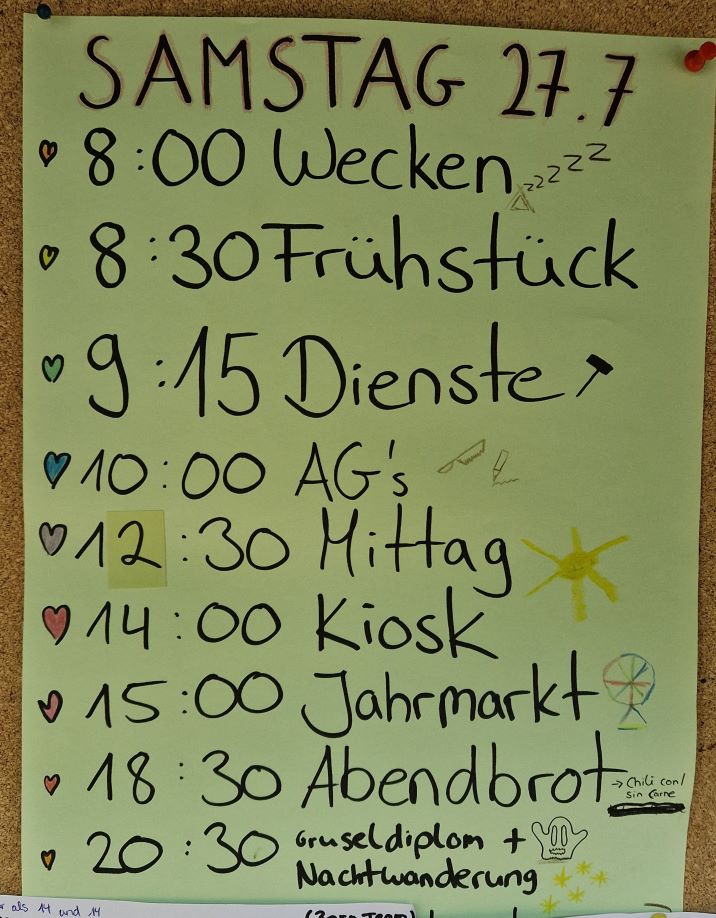 SAMSTAG 27.7
8:00 Wecken zzzzz
8:30 Frühstück
9:15 Dienste
10:00 AG's
12:30 Mittag
14:00 Kiosk
15:00 Jahrmarkt
18:30 Abendbrot → Chili con/
sin Carne
20:30 Gruseldiplom +
Nachtwanderung
als 14 und 14